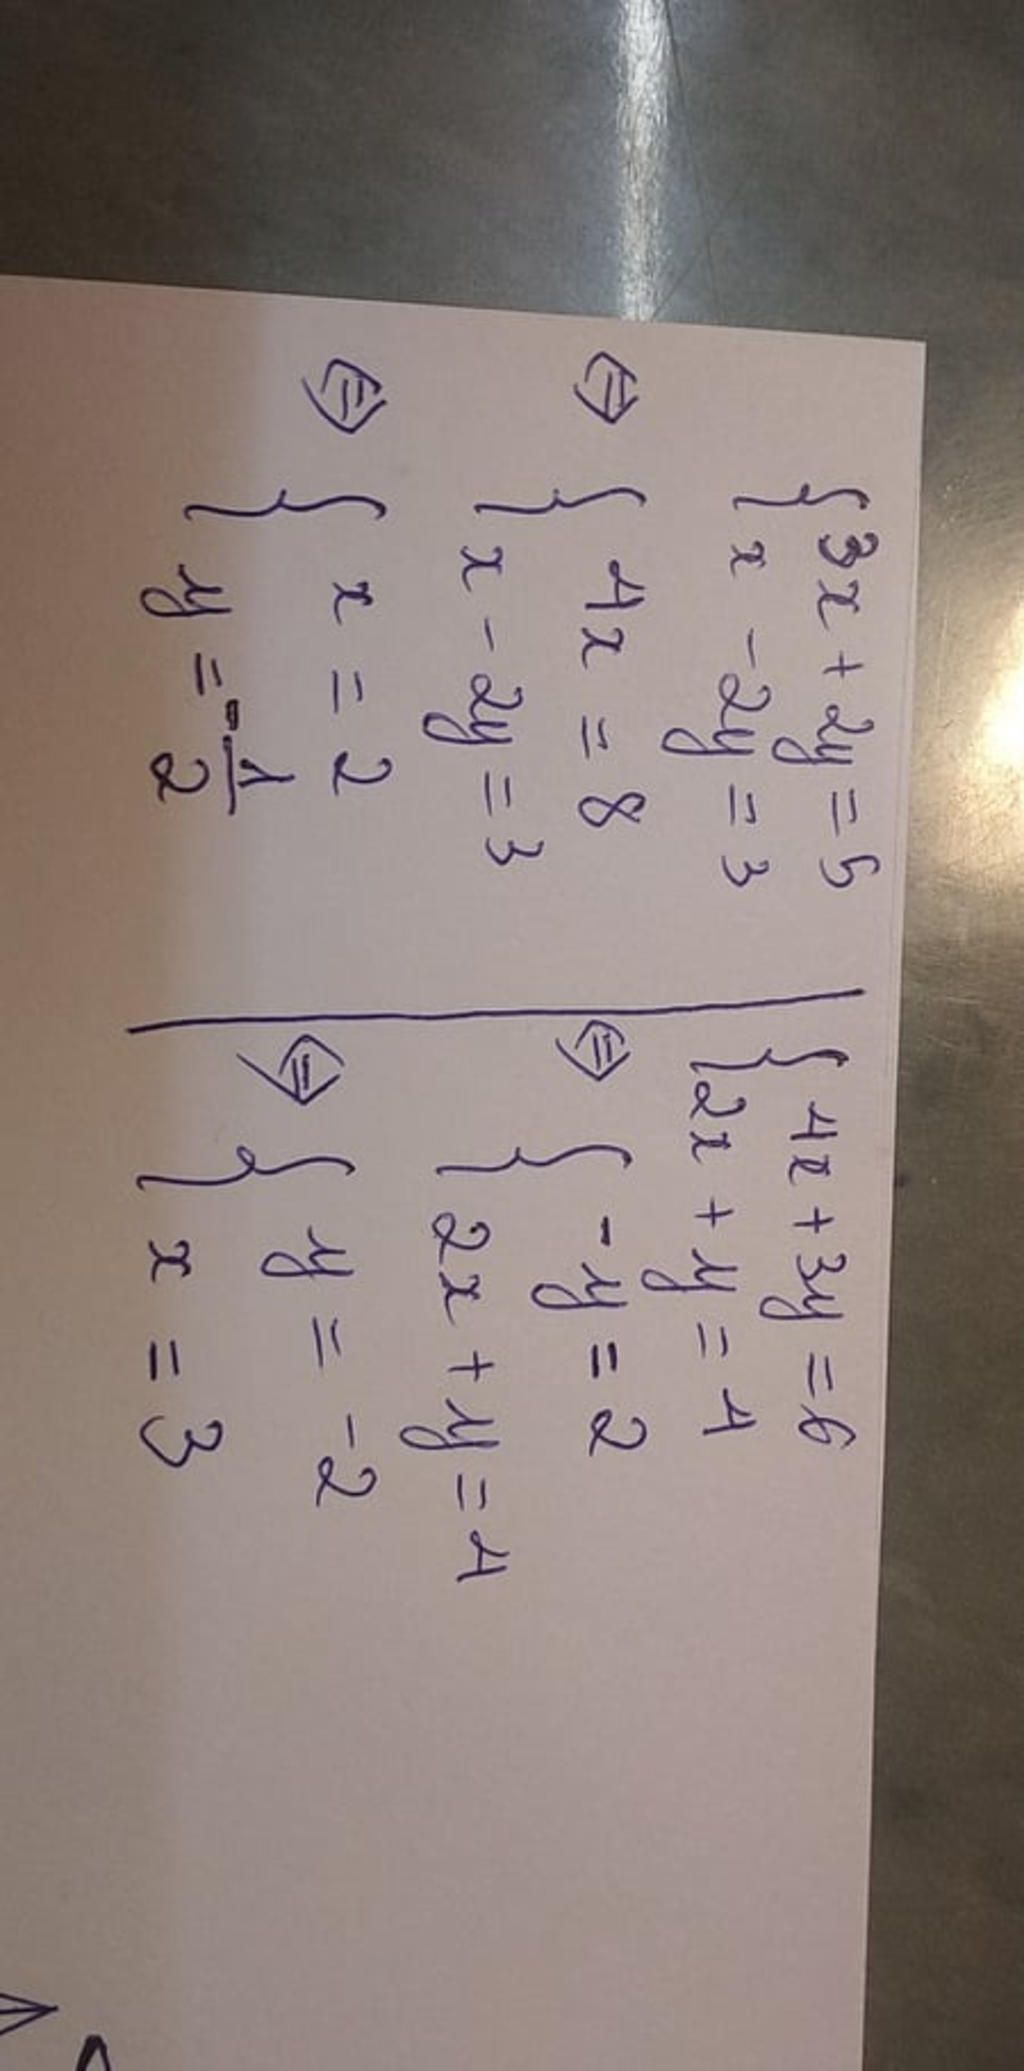 { 3x + 2y = 5
{ x - 2y = 3
⇔ { 4x = 8
{ x - 2y = 3
⇔ { x = 2
{ y = -1/2
{ 4x + 3y = 6
{ 2x + y = 4
⇔ { -y = 2
{ 2x + y = 4
⇔ { y = -2
{ x = 3